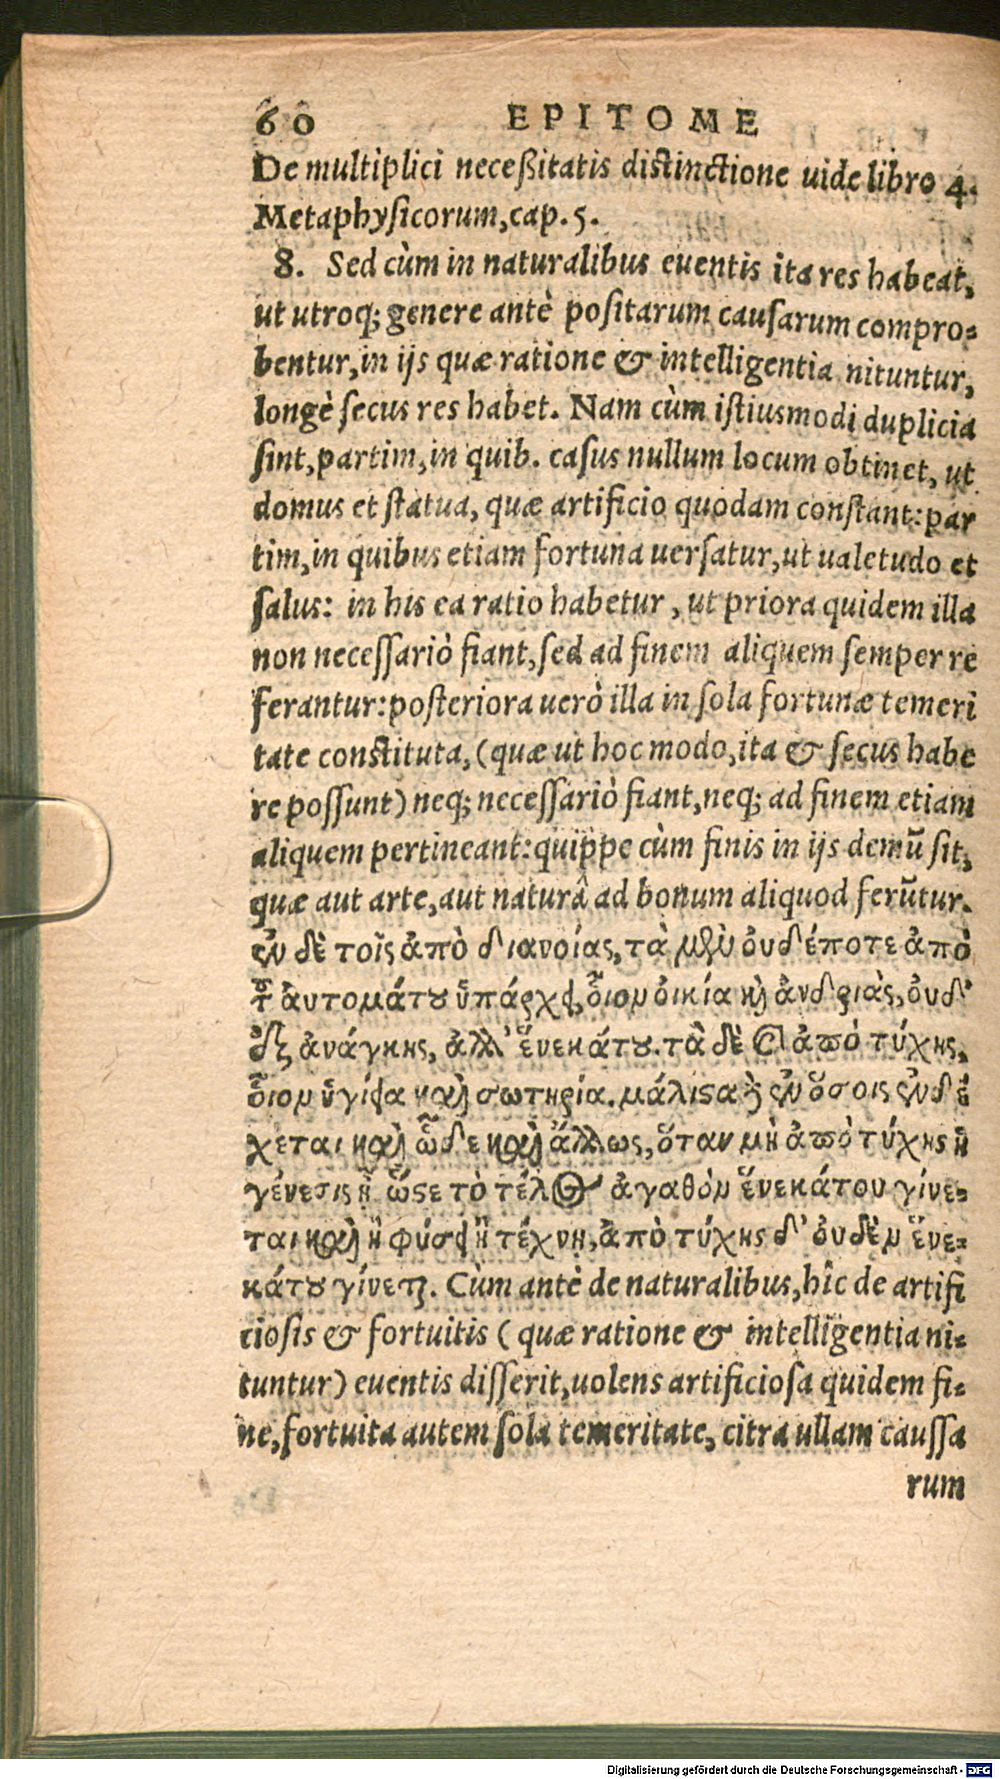 60 EPITOME
De multiplici neceßitatis distinctione uide libro 4.
Metaphysicorum, cap. 5.
8. Sed cùm in naturalibus euentis ita res habeat,
ut utroq; genere antè positarum causarum compro-
bentur, in ijs quæ ratione & intelligentia nituntur,
longè secus res habet. Nam cùm istiusmodi duplicia
sint, partim, in quib. casus nullum locum obtinet, ut
domus et statua, quæ artificio quodam constant: par
tim, in quibus etiam fortuna uersatur, ut ualetudo et
salus: in his ea ratio habetur, ut priora quidem illa
non necessariò fiant, sed ad finem aliquem semper re
ferantur: posteriora uerò illa in sola fortunæ temeri
tate constituta, (quæ ut hoc modo, ita & secus habe
re possunt) neq; necessariò fiant, neq; ad finem etiam
aliquem pertineant: quippe cùm finis in ijs demũ sit,
quæ aut arte, aut naturâ ad bonum aliquod ferũtur.
ἐν δὲ τοῖς ἀπὸ διανοίας, τὰ μὲν ὀυδέποτε ἀπὸ
τοῦ ἀυτομάτου ὑπάρχει, ὅιον ὀικία καὶ ἀνδριὰς, ὀυδ'
ἐξ ἀνάγκης, ἀλλ' ἕνεκάτου. τὰ δὲ καὶ ἀπὸ τύχης,
ὅιον ὑγίεια καὶ σωτηρία. μάλιστα δὲ ἐν ὅσοις ἐνδέ
χεται καὶ ὧδε καὶ ἄλλως, ὅταν μὴ ἀπὸ τύχης ἡ
γένεσις ᾖ, ὥστε τὸ τέλος ἀγαθὸν ἕνεκάτου γίνε-
ται καὶ ἢ φύσει ἢ τέχνῃ, ἀπὸ τύχης δ' ὀυδὲν ἕνε-
κάτου γίνεται. Cùm antè de naturalibus, hîc de artifi
ciosis & fortuitis ( quæ ratione & intelligentia ni-
tuntur) euentis disserit, uolens artificiosa quidem fi-
ne, fortuita autem sola temeritate, citra ullam caussa
rum
Digitalisierung gefördert durch die Deutsche Forschungsgemeinschaft - DFG